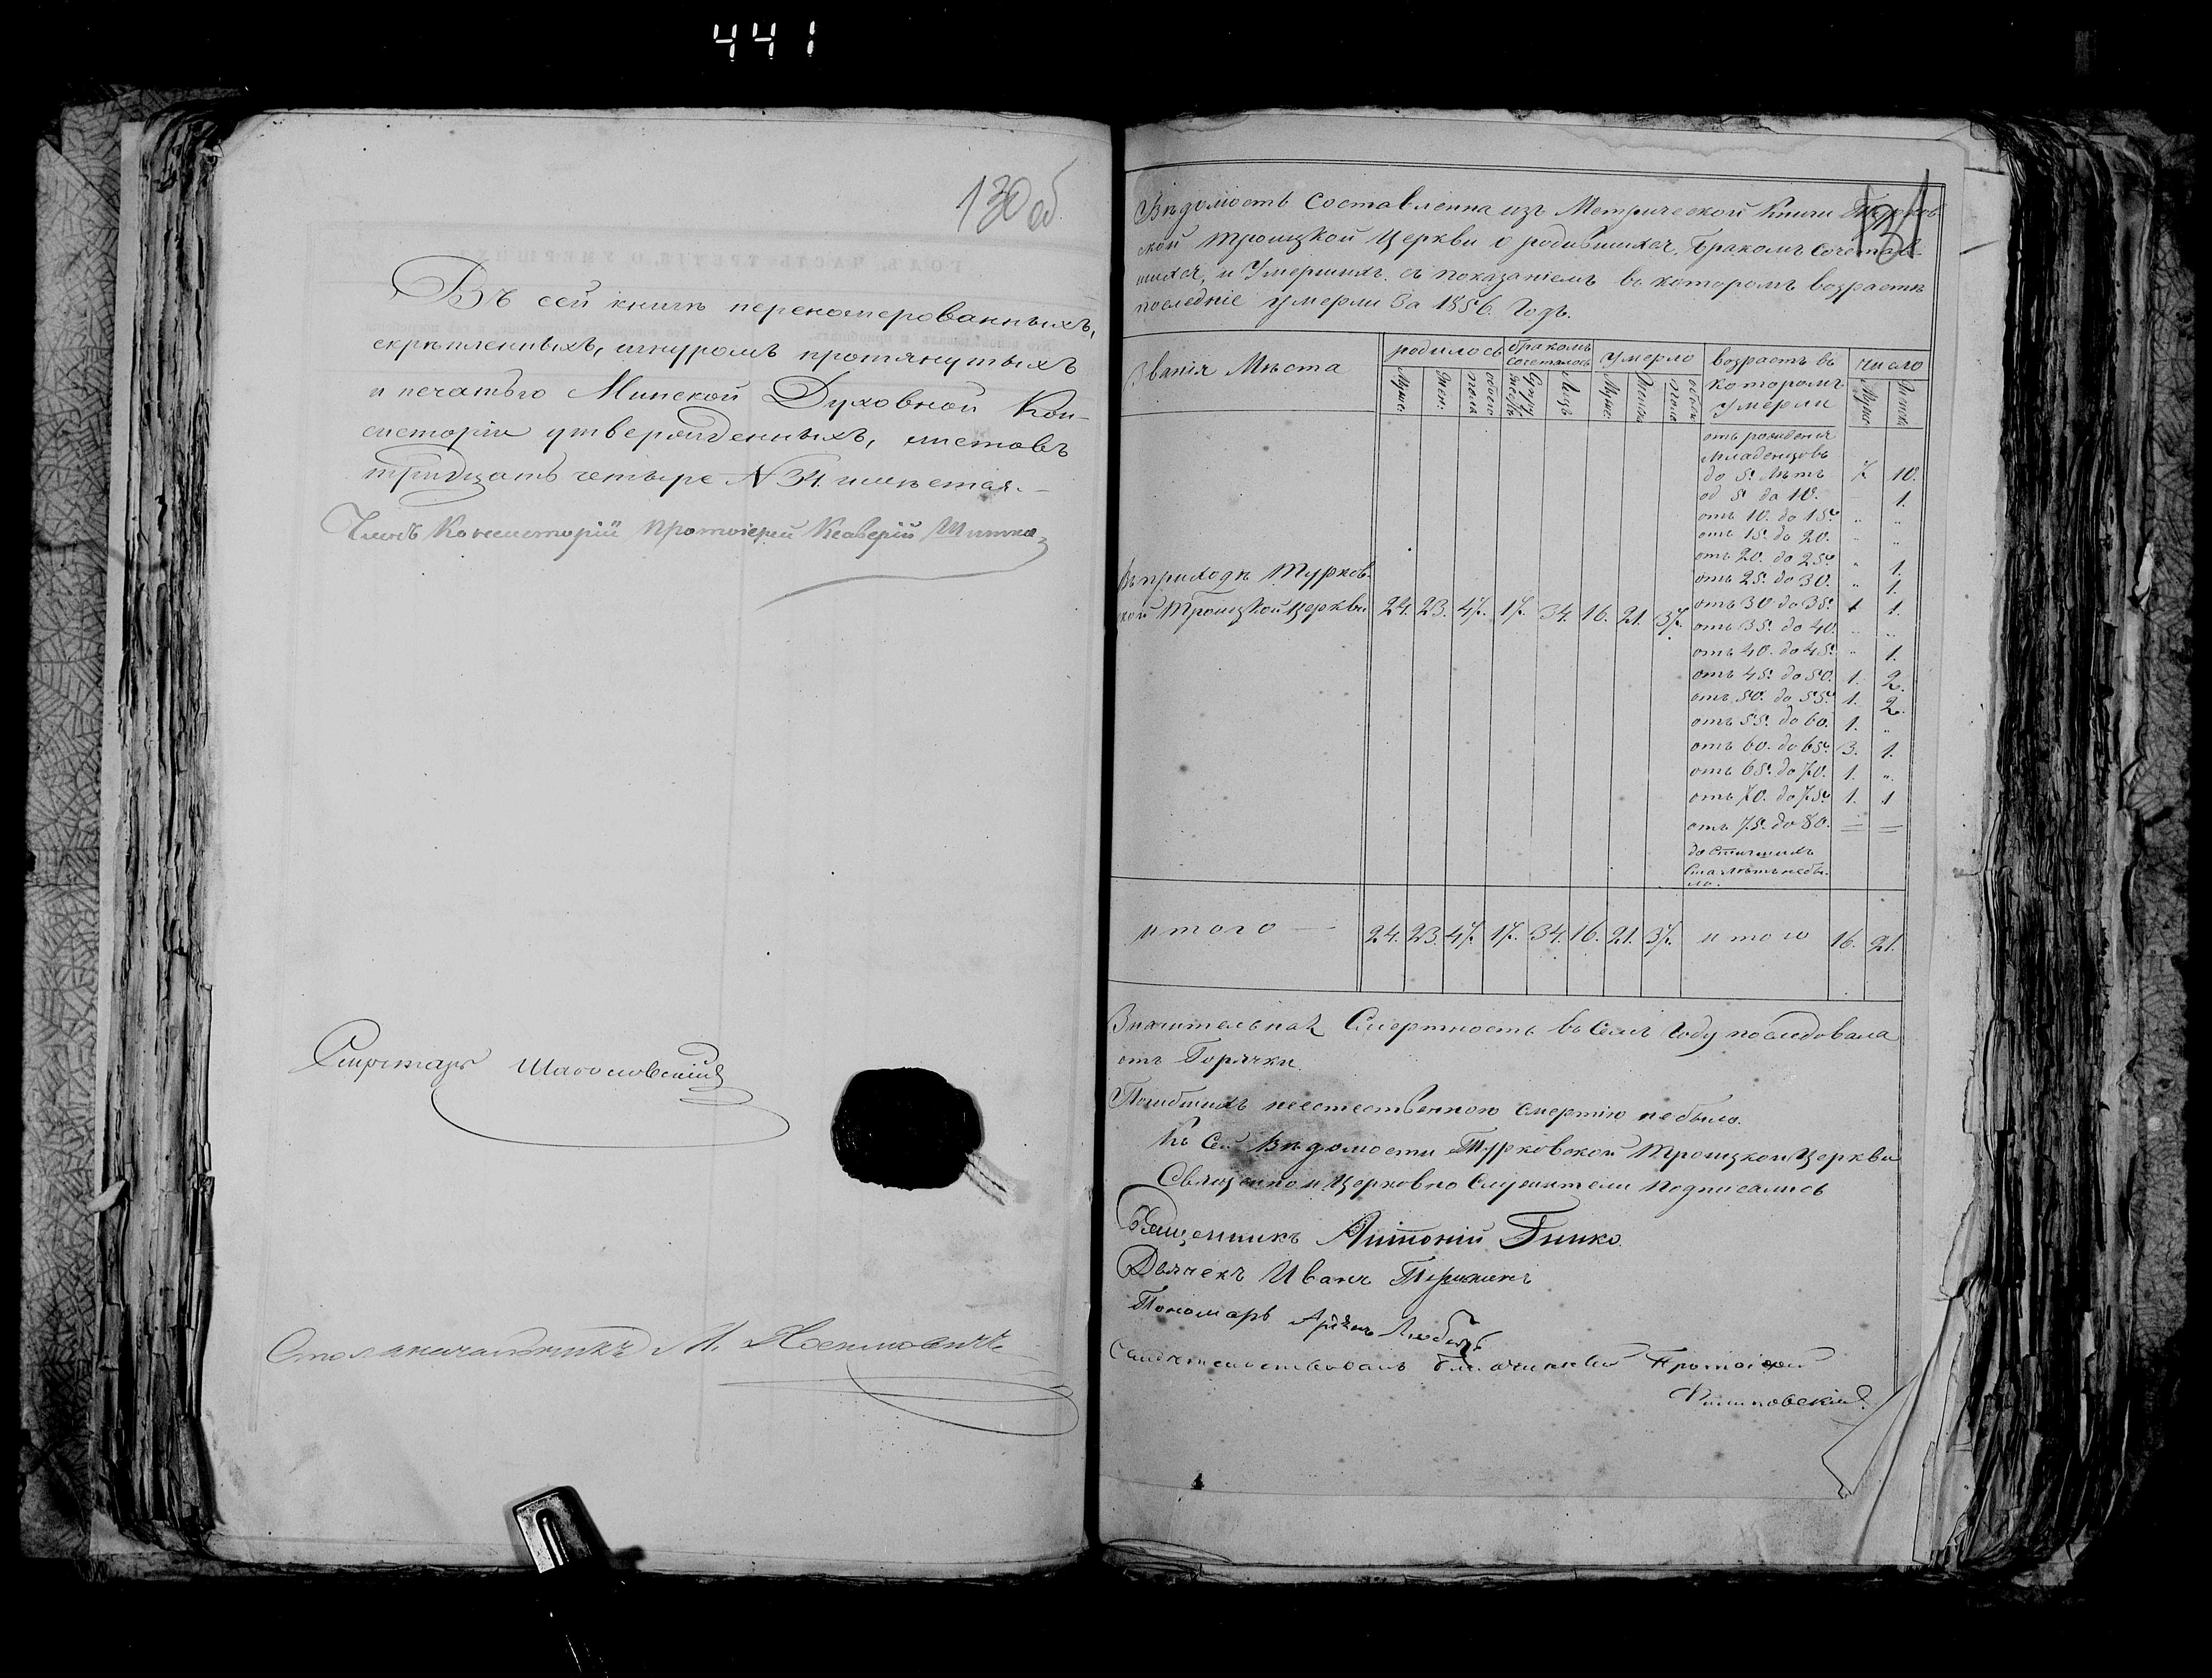 441
130 об
Въ сей книгѣ перекомерованныхъ,
скрѣпленныхъ, шнуромъ протянутыхъ
и печатью Минской Духовной Кон-
систоріи утвержденныхъ, листовъ
тридцать четыре № 34. имѣется.
Членъ Консисторіи Протоіерей Ксаверій
Секретарь
Столоначальникъ М.
131
Вѣдомость Составленна изъ Метрической Книги Турков-
ской Троицкой Церкви о родившихся, Бракомъ Сочетав-
шихся, и Умершихъ съ показаніемъ въ которомъ возрастѣ
последніе умерли За 1856. Годъ.
Званія Мѣста
родилось
бракомъ сочеталось
умерло
возрастъ въ которомъ умерли
число
Муж.
Жен.
обоего пола
Супружествъ
Лицъ
Муж.
Женск.
обоего пола
Муж.
Женск.
отъ рожденія
младенцовъ
до 5. лѣтъ 7. 10.
од 5. до 10. 1.
отъ 10. до 15. " "
отъ 15. до 20. " "
отъ 20. до 25. " 1.
отъ 25. до 30. " 1.
отъ 30 до 35. 1 1.
отъ 35. до 40. " "
отъ 40. до 45. " 1.
отъ 45. до 50. 1. 2.
отъ 50. до 55. 1. 2.
отъ 55. до 60. 1. "
отъ 60. до 65. 3. 1.
отъ 65. до 70. 1. "
отъ 70. до 75. 1. 1
отъ 75. до 80. = =
достигшихъ
ста лѣтъ не бы-
ло.
Въ приходѣ Турков-
ской Троицкой Церкви 24. 23. 47. 17. 34. 16. 21. 37.
итого — 24. 23. 47. 17. 34. 16. 21. 37. итого 16. 21.
Значительная Смертность въ Семъ Году последовала
отъ Горячки.
Погибшихъ неестественною смертію не было.
Къ Сей Вѣдомости Турковской Троицкой Церкви
Священно и Церковно Служители подписались
Священникъ Антоній Гинко.
Дьячекъ Иванъ
Пономарь
Свидѣтельствовалъ благочинный Протоіерей